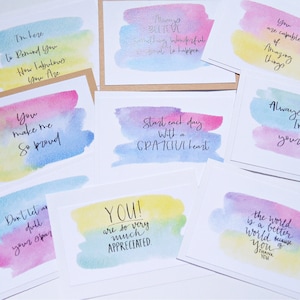 I'm here
to Remind You
How Fabulous
You Are
Always
BELIEVE
something wonderful
is about to happen
you are
capable
of
Amazing
things
You
make me
So proud
Start each day
With a
GRATEFUL heart
Always
your
Don't let
dull
your
YOU!
are so very
much
APPRECIATED
the world
is a better
World because
you